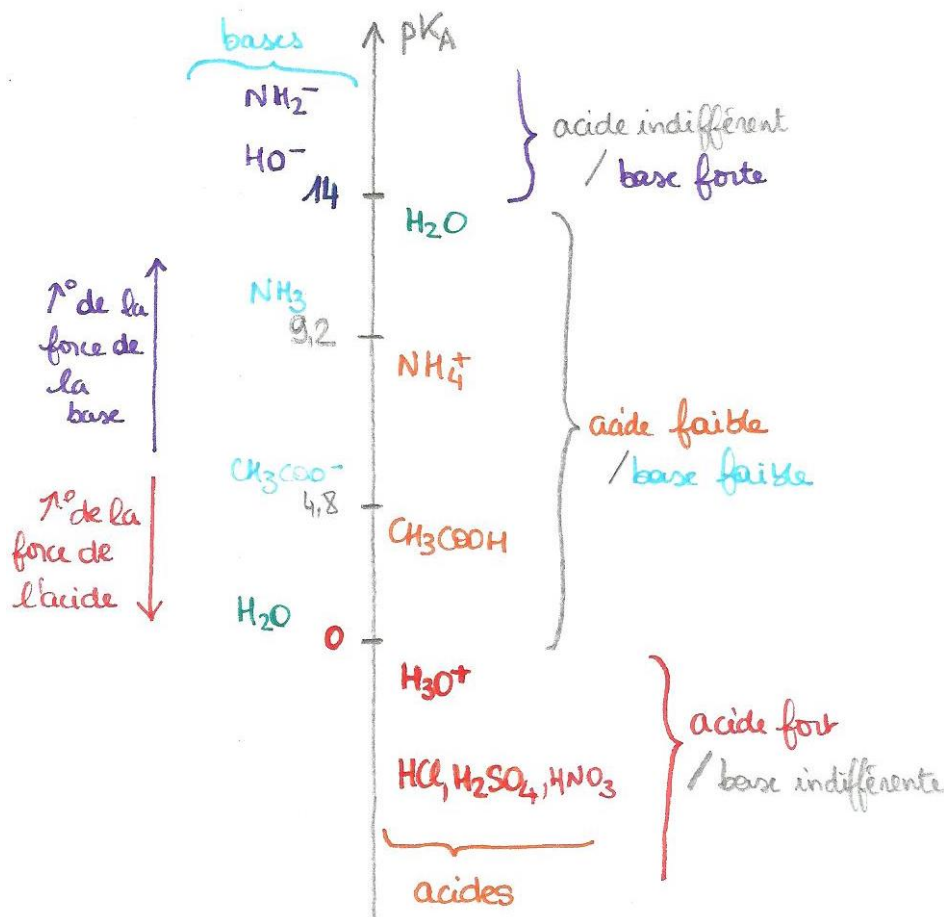 bases
pKA
NH2⁻
HO⁻
14
acide indifférent
/ base forte
H2O
↗° de la
force de
la
base
NH3
9,2
NH4⁺
acide faible
/base faible
CH3COO⁻
4,8
CH3COOH
↗° de la
force de
l'acide
H2O
0
H3O⁺
HCl, H2SO4, HNO3
acide fort
/ base indifférente
acides